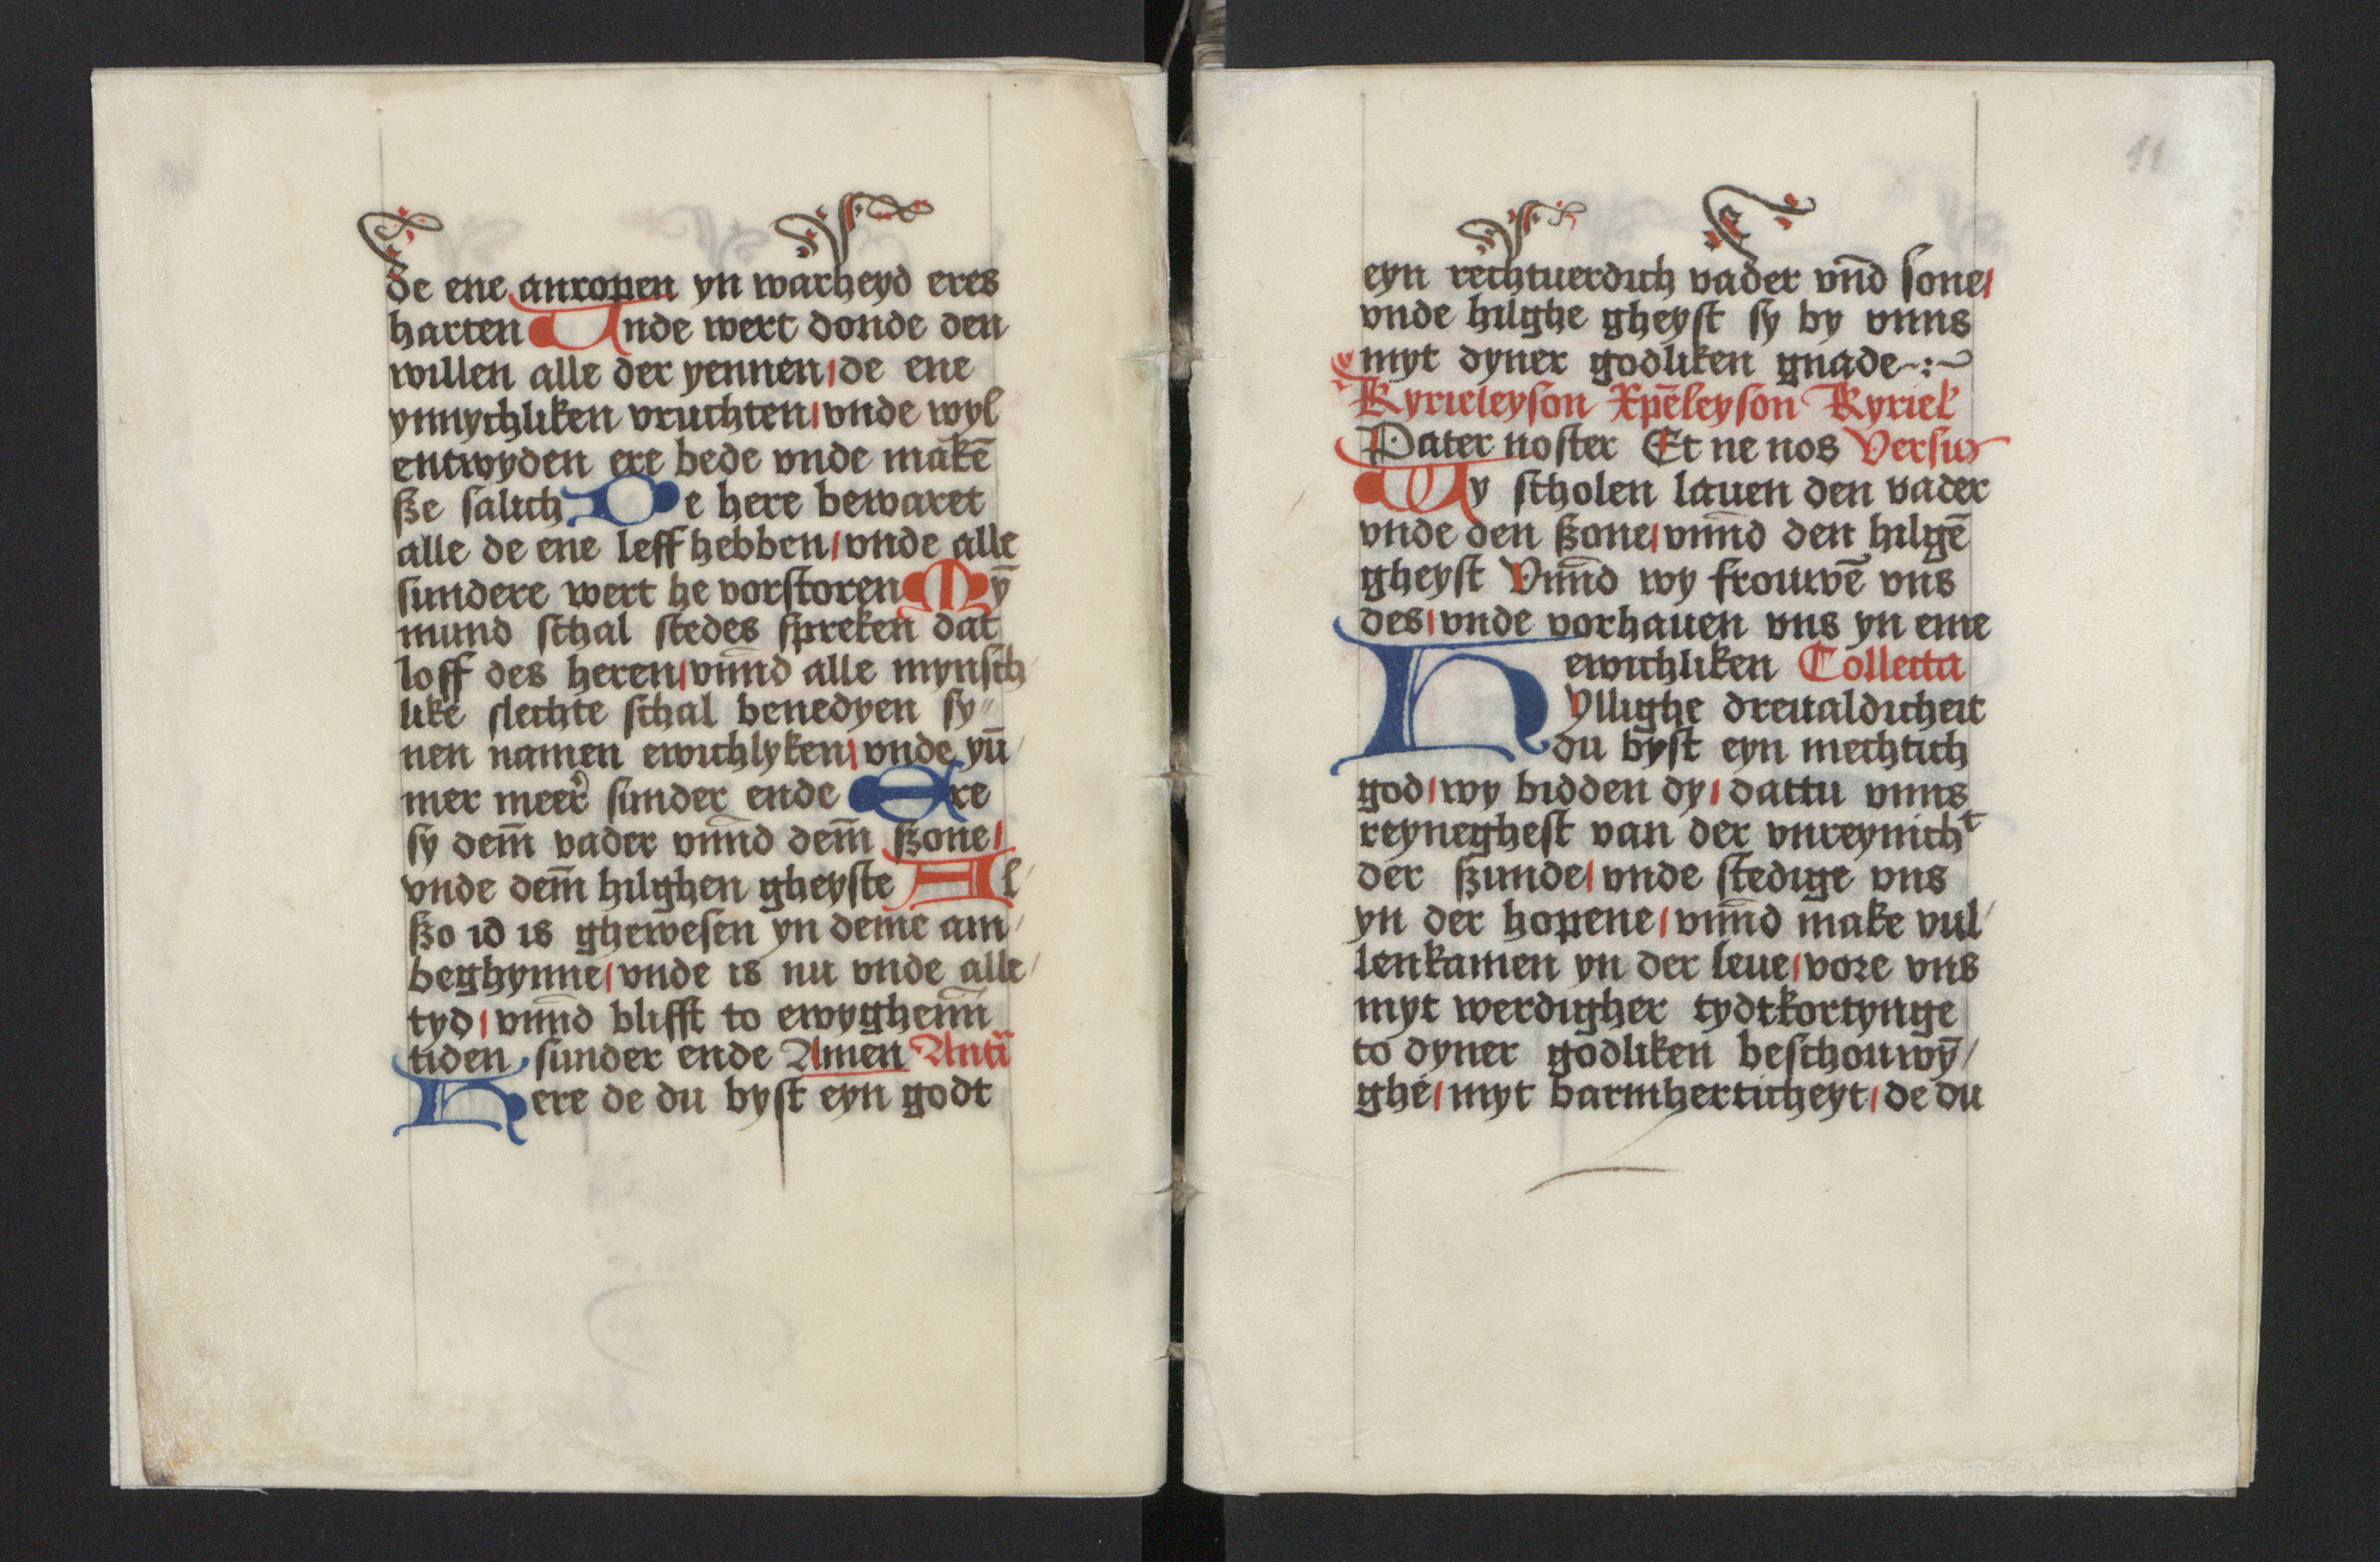 de ene anropen yn warheyd eres
harten Unde wert donde den
willen alle der yennen / de ene
ynnychliken vruchten / vnde wyl
entwyden ere bede vnde makē
sze salich De here bewaret
alle de ene leff hebben / vnde alle
sundere wert he vorstoren Mȳ
mund schal stedes spreken dat
loff des heren / vnn̄d alle mynsch/
like slechte schal benedyen sy〃
nen namen ewichlyken / vnde yū/
mer meer sunder ende Ere
sy dem̄ vader vnn̄d dem̄ szone /
vnde dem̄ hilghen gheyste Al/
szo id is ghewesen yn deme am/
beghynne / vnde is nu vnde alle/
tyd / vnn̄d blifft to ewyghenn̄
tiden sunder ende Amen Antī
Here de du byst eyn godt
11
eyn rechtuerdich vader vn̄d sone /
vnde hilghe gheyst sy by vnns
myt dyner godliken gnade ~:~
Kyrieleyson Xp̄eleyson Kyriel
Pater noster Et ne nos Versus
Wy scholen lauen den vader
vnde den szone / vnn̄d den hilgē
gheyst Vnn̄d wy frouwē vns
des / vnde vorhauen vns yn eme
ewichliken Collecta
HYllighe dreualdicheit
du byst eyn mechtich
god / wy bidden dy / dattu vnns
reyneghest van der vnreynichᵗ
der szunde / vnde stedige vns
yn der hopene / vnn̄d make vul/
lenkamen yn der leue / vore vns
myt werdigher tydtkortynge
to dyner godliken beschouwȳ/
ghe / myt barmherticheyt / de du